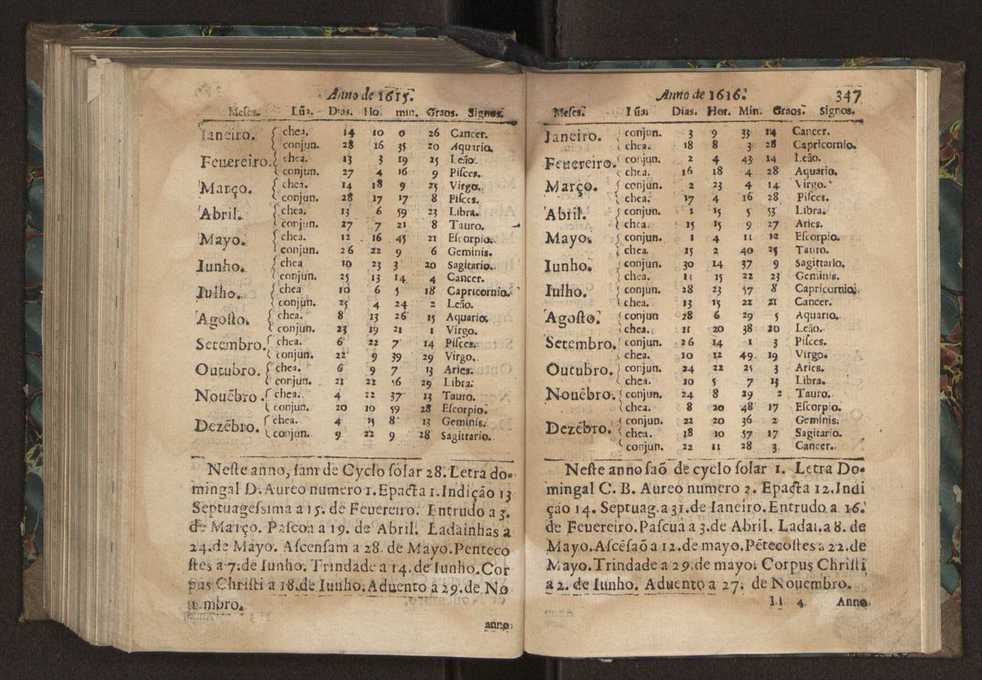 Anno de 1615.
Meses. Lũa. Dias. Ho. min. Graos. Signos.
Ianeiro. chea. 14 10 0 26 Cancer.
conjun. 28 16 35 20 Aquario.
Feuereiro. chea. 13 3 19 25 Leão.
conjun. 27 4 16 9 Pisces.
Março. chea. 14 18 9 25 Virgo.
conjun. 28 17 17 8 Pisces.
Abril. chea. 13 6 59 23 Libra.
conjun. 27 7 21 8 Tauro.
Mayo. chea. 12 16 45 21 Escorpio.
conjun. 26 22 9 6 Geminis.
Iunho. chea 10 23 3 20 Sagitario.
conjun. 25 13 14 4 Cancer.
Iulho. chea 10 6 5 18 Capricornio.
conjun. 25 4 24 2 Leão.
Agosto. chea. 8 13 26 15 Aquario.
conjun. 23 19 21 1 Virgo.
Setembro. chea. 6 22 7 14 Pisces.
conjun. 22 9 39 29 Virgo.
Outubro. chea. 6 9 7 13 Aries.
conjun. 21 22 16 29 Libra.
Nouẽbro. chea. 4 22 37 13 Tauro.
conjun. 20 10 59 28 Escorpio.
Dezẽbro. chea. 4 15 8 13 Geminis.
conjun. 9 22 9 28 Sagittario.
Neste anno, sam de Cyclo solar 28. Letra do-
mingal D. Aureo numero 1. Epacta 1. Indição 13
Septuagessima a 15. de Feuereiro. Entrudo a 3.
de Março. Pascoa a 19. de Abril. Ladainhas a
24. de Mayo. Ascensam a 28. de Mayo. Penteco
stes a 7. de Iunho. Trindade a 14. de Iunho. Cor
pus Christi a 18. de Iunho. Aduento a 29. de No
uembro.
anno
Anno de 1616. 347
Meses. Lũa. Dias. Hor. Min. Graos. Signos.
Janeiro. conjun. 3 9 33 14 Cancer.
chea. 18 8 3 28 Capricornio.
Feuereiro. conjun. 2 4 43 14 Leão.
chea. 16 18 4 28 Aquario.
Março. conjun. 2 23 4 14 Virgo.
chea. 17 4 16 28 Pisces.
Abril. conjun. 1 15 5 53 Libra.
chea. 15 15 9 27 Aries.
Mayo. conjun. 1 4 11 12 Escorpio.
chea. 15 2 40 25 Tauro.
Iunho. conjun. 30 14 37 9 Sagittario.
chea. 15 22 23 Geminis.
Iulho. conjun. 28 23 57 8 Capricornio.
chea. 13 15 22 21 Cancer.
Agosto. conjun 28 6 29 5 Aquario.
chea. 11 20 38 20 Leão.
Setembro. conjun. 26 14 1 3 Pisces.
chea. 10 12 49 19 Virgo.
Outubro. conjun. 24 22 25 3 Aries.
chea. 10 5 7 13 Libra.
Nouẽbro. conjun. 24 8 29 2 Tauro.
chea. 8 20 48 17 Escorpio.
Dezẽbro. conjun. 22 20 36 2 Geminis.
chea. 18 10 57 17 Sagitario.
conjun. 22 11 28 3 Cancer.
Neste anno saõ de cyclo solar 1. Letra Do-
mingal C. B. Aureo numero 2. Epacta 12. Indi
ção 14. Septuag. a 31. de Ianeiro. Entrudo a 16.
de Feuereiro. Pascua a 3. de Abril. Ladai. a 8. de
Mayo. Ascẽsaõ a 12. de mayo. Pẽtecostes a 22. de
Mayo. Trindade a 29. de mayo. Corpus Christi
a 2. de Iunho. Aduento a 27. de Nouembro.
4 Anno